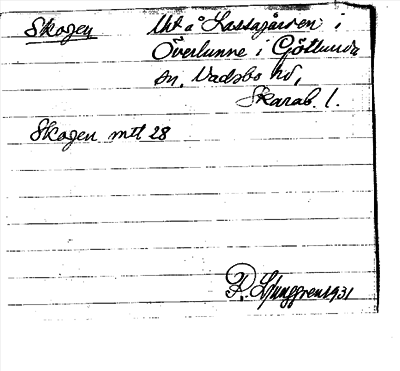 Skogen Uht å Lassagården i
Överlunne i Götlunda
sn, Vadsbo hd,
Skarab. l.
Skogen mtl. 28
R. Ljunggren 1931